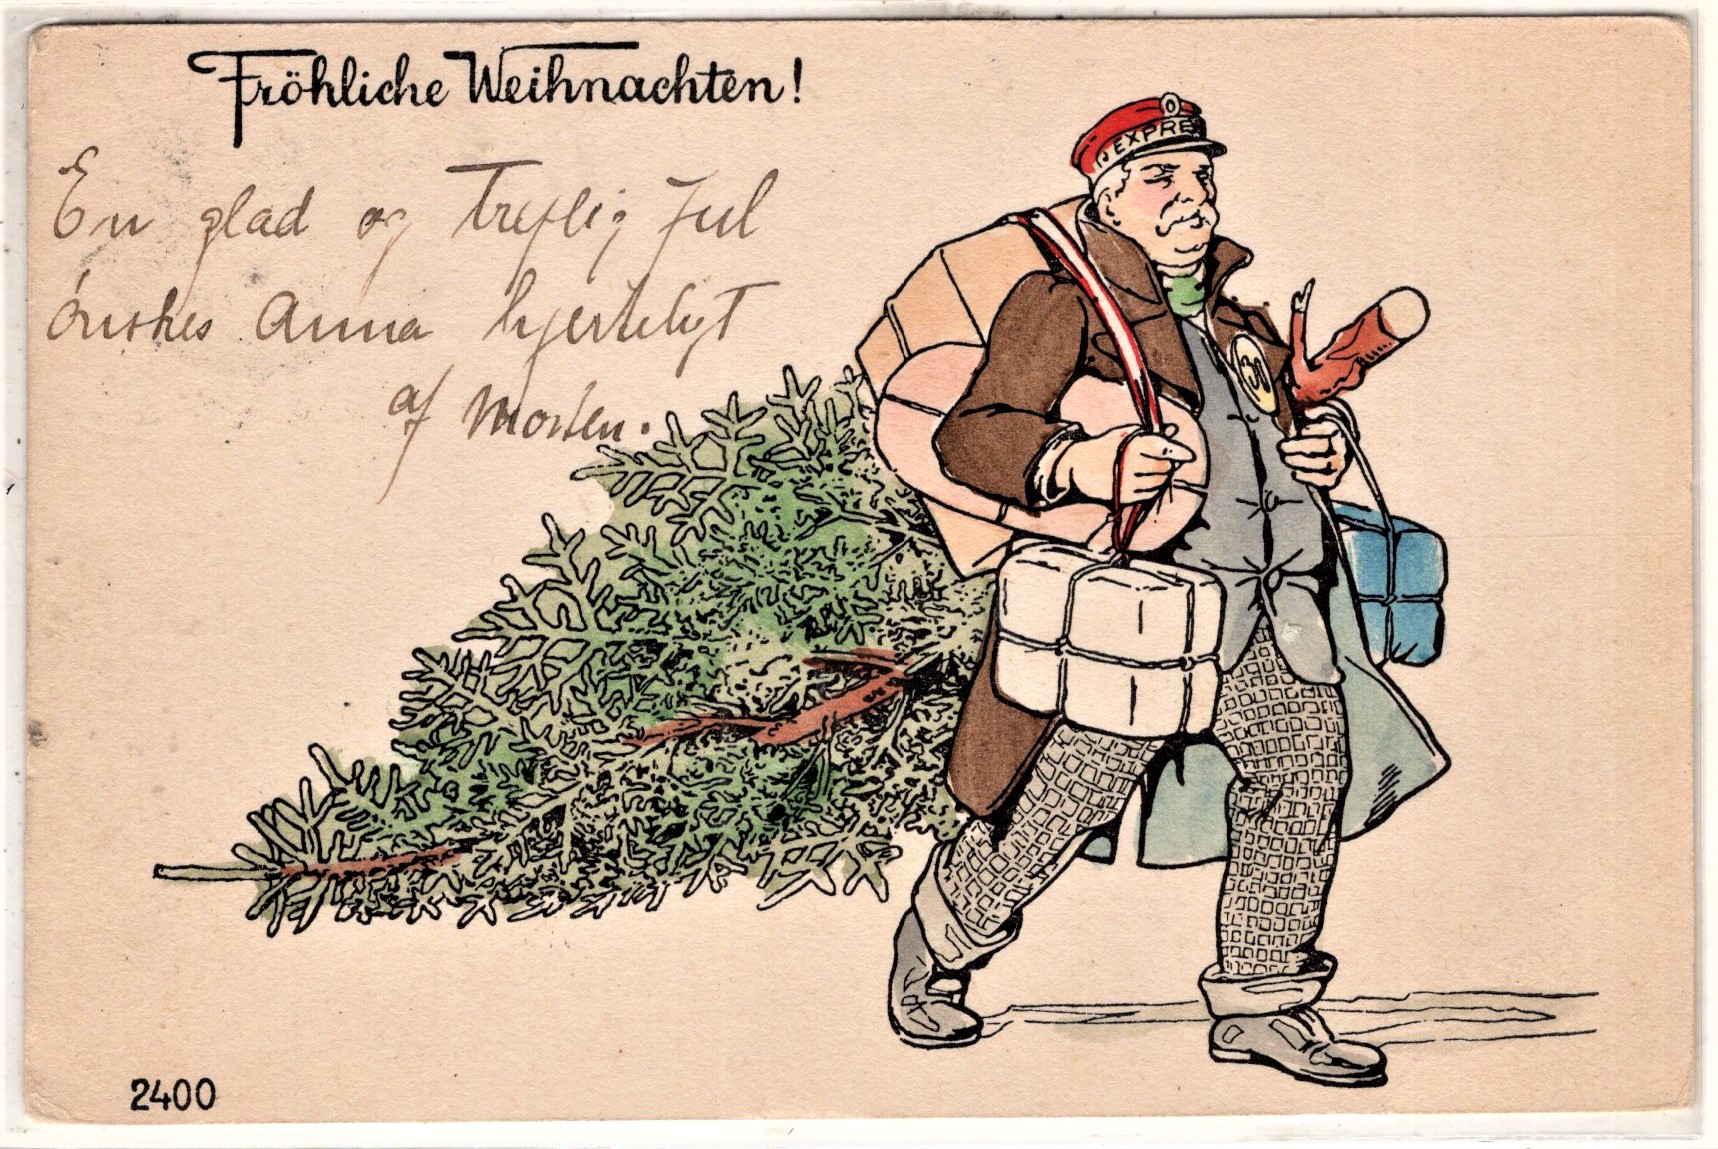 Fröhliche Weihnachten!
En glad og treflig Jul
önskes Anna hjerteligt
af Morten.
EXPRES
30
2400